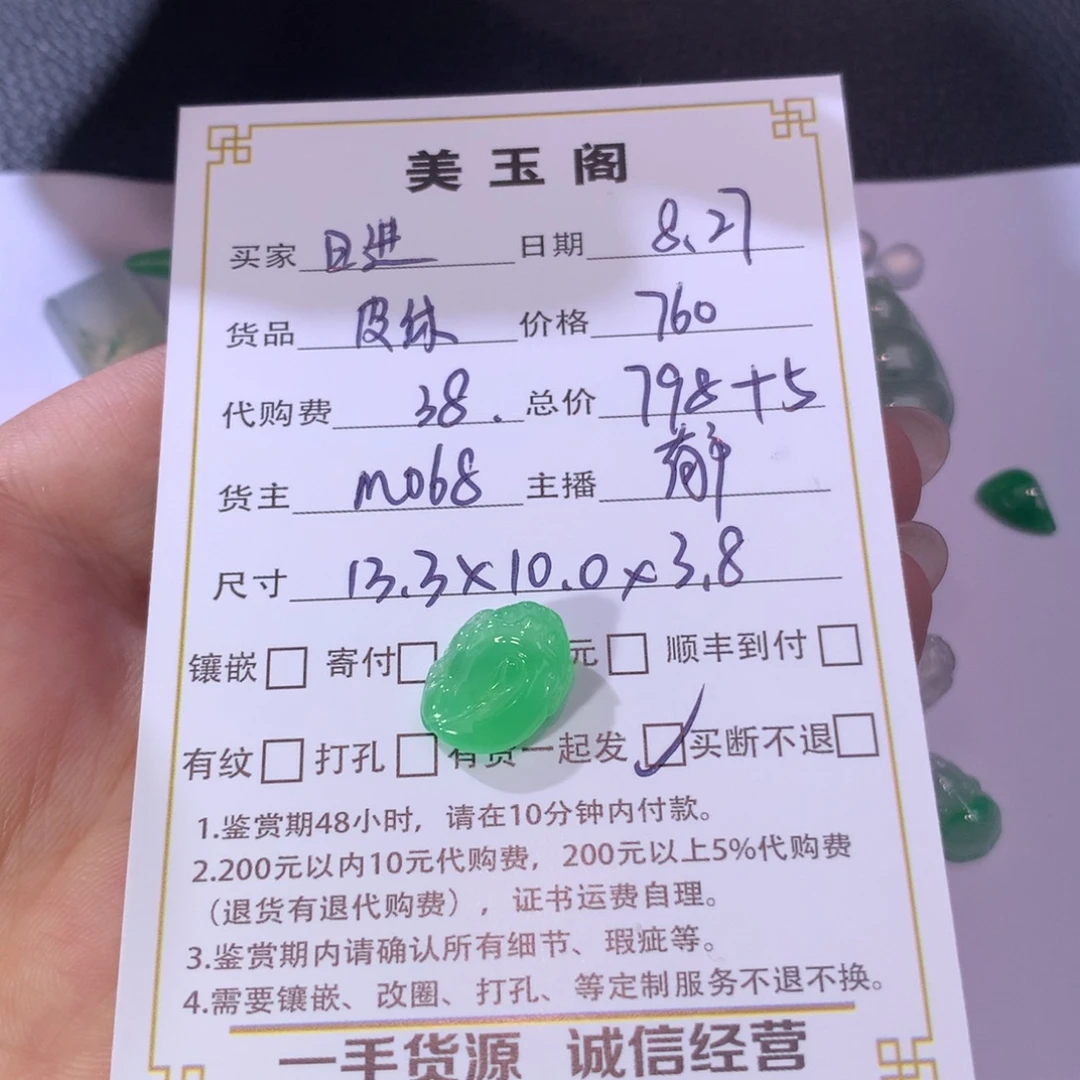 美玉阁
买家 日进 日期 8.27
货品 皮休 价格 760
代购费 38. 总价 798+5
货主 M068 主播 静
尺寸 13.3×10.0×3.8
镶嵌□ 寄付□ 元□ 顺丰到付□
有纹□ 打孔□ 有货一起发□✓ 买断不退□
1.鉴赏期48小时，请在10分钟内付款。
2.200元以内10元代购费，200元以上5%代购费
（退货有退代购费），证书运费自理。
3.鉴赏期内请确认所有细节、瑕疵等。
4.需要镶嵌、改圈、打孔、等定制服务不退不换。
一手货源 诚信经营